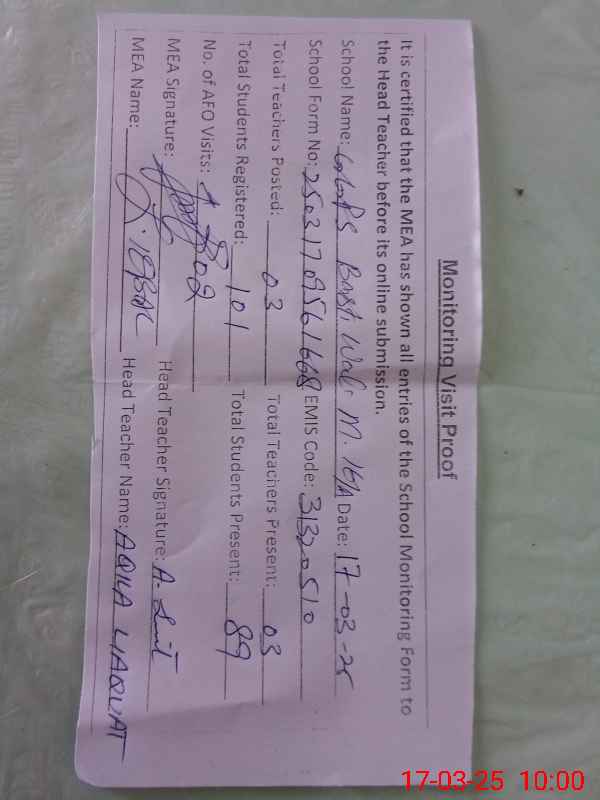 Monitoring Visit Proof
It is certified that the MEA has shown all entries of the School Monitoring Form to
the Head Teacher before its online submission.
School Name: GGPS Basti Wali M. Date: 17-03-25
School Form No: EMIS Code: 31320510
Total Teachers Posted: 03 Total Teachers Present: 03
Total Students Registered: 101 Total Students Present: 89
No. of AFO Visits:
MEA Signature: Head Teacher Signature:
MEA Name: Head Teacher Name: AQILA LIAQUAT
17-03-25 10:00